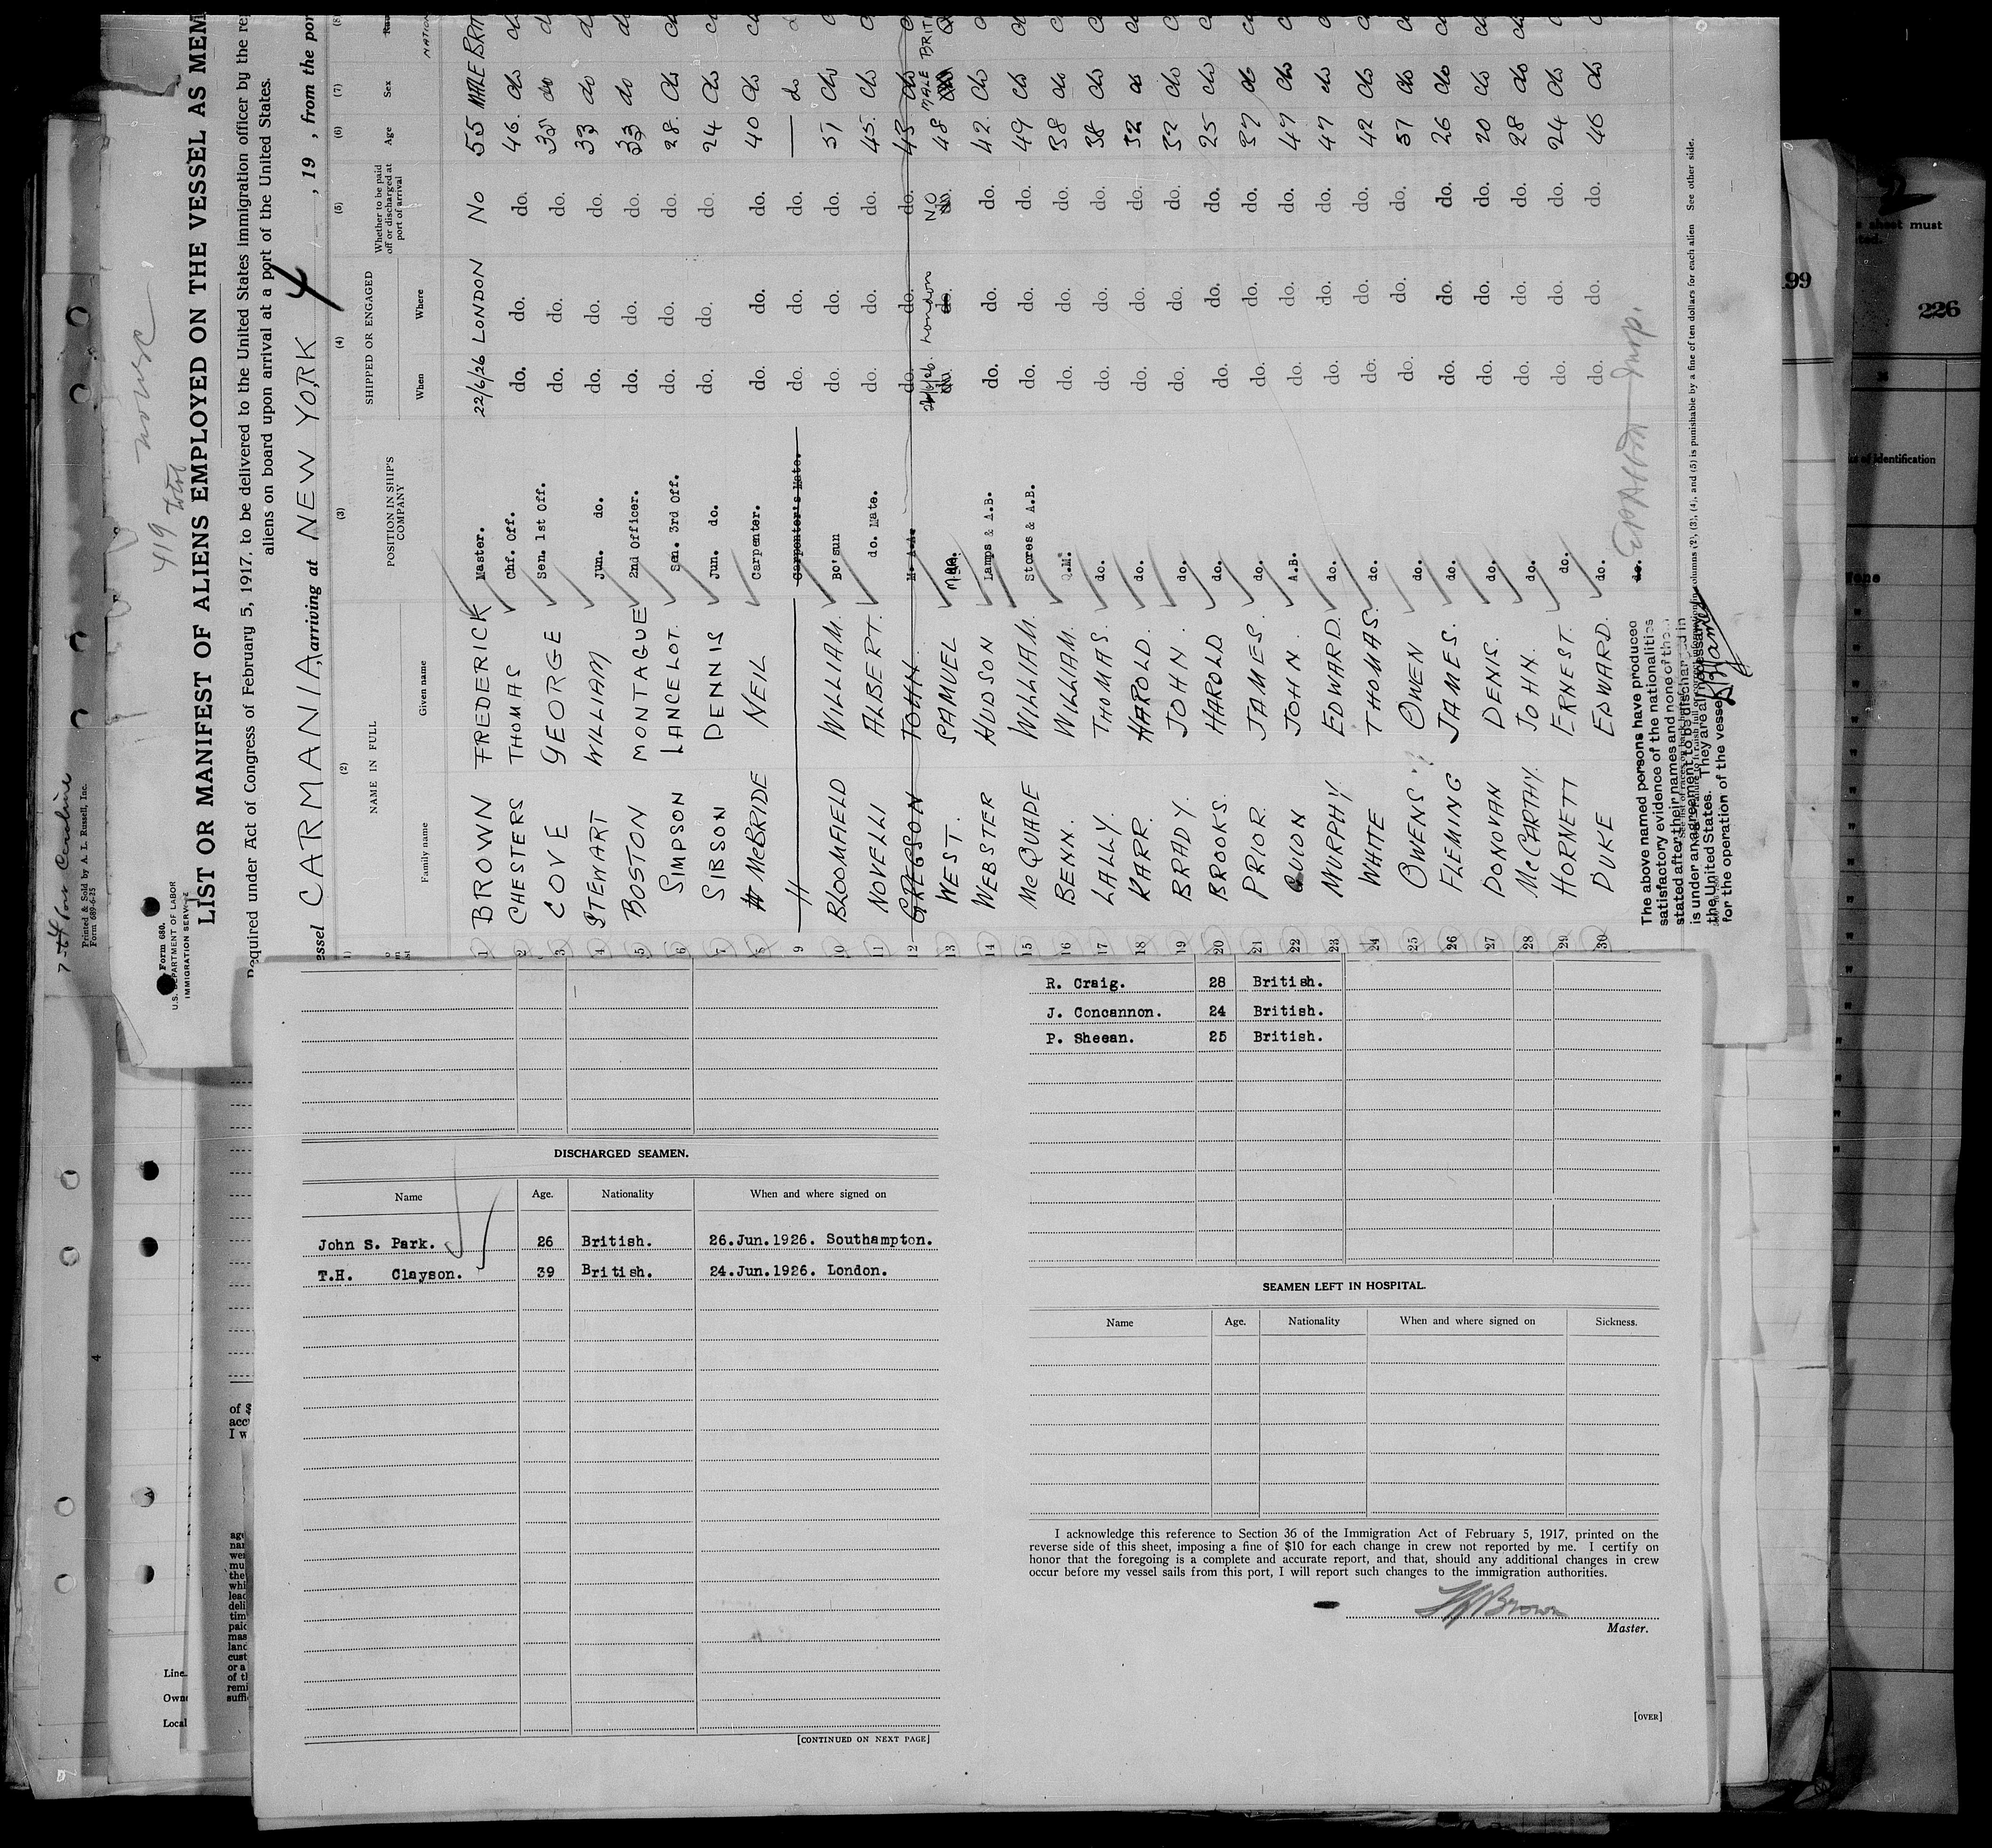 7-24 Form
Printed & Sold by A. L. Russell, Inc.
Form 689-6-25
Form 680.
U.S. DEPARTMENT OF LABOR
IMMIGRATION SERVICE
419
LIST OR MANIFEST OF ALIENS EMPLOYED ON THE VESSEL AS MEM
Required under Act of Congress of February 5, 1917, to be delivered to the United States immigration officer by the re
aliens on board upon arrival at a port of the United States.
essel CARMANIA, arriving at NEW YORK 4, 19 , from the por
(2) (3) (4) (5) (6) (7) (8)
NAME IN FULL POSITION IN SHIP'S COMPANY SHIPPED OR ENGAGED Whether to be paid off or discharged at port of arrival Age Sex
Family name Given name When Where
1 BROWN FREDERICK Master. 22/6/26 LONDON No 55 MALE BRIT
2 CHESTERS THOMAS Chf. Off. do. do. do. 46. do
3 COVE GEORGE Sen. 1st Off. do. do. do. 35 do
4 STEWART WILLIAM Jun. do. do. do. do. 33 do
5 BOSTON MONTAGUE 2nd Officer. do. do. do. 33 do
6 SIMPSON LANCELOT Sen. 3rd Off. do. do. do. 28. do
7 SIBSON DENNIS Jun. do. do. do. do. 24 do
8 McBRIDE NEIL Carpenter. do. do. do. 40 do
9 Carpenter's Mate. do. do. do. — do
10 BLOOMFIELD WILLIAM. Bo'sun do. do. do. 51 do
11 NOVELLI ALBERT. do. Mate. do. do. do. 45. do
12 GREGSON JOHN. M. A.A. do. do. do. 43 do
13 WEST. SAMUEL do. London NO 48 MALE BRITI
14 WEBSTER HUDSON Lamps & A.B. do. do. do. 42. do
15 McQUADE WILLIAM. Stores & A.B. do. do. do. 49 do
16 BENN. WILLIAM. Q.M. do. do. do. 38 do
17 LALLY. THOMAS. do. do. do. do. 38 do
18 KARR. HAROLD. do. do. do. do. 32 do
19 BRADY. JOHN. do. do. do. do. 32 do
20 BROOKS. HAROLD do. do. do. do. 25 do
21 PRIOR. JAMES. do. do. do. do. 37 do
22 QUION JOHN. A.B. do. do. do. 47 do
23 MURPHY. EDWARD. do. do. do. do. 47 do
24 WHITE THOMAS. do. do. do. do. 42 do
25 OWENS OWEN do. do. do. do. 37 do
26 FLEMING JAMES. do. do. do. do. 26 do
27 DONOVAN DENIS. do. do. do. do. 20 do
28 McCARTHY. JOHN. do. do. do. do. 28 do
29 HORNETT ERNEST. do. do. do. do. 24 do
30 DUKE EDWARD. do. do. do. do. 46 do
do. Insp.
The above named persons have produced
satisfactory evidence of the nationalities
stated after their names and none of them
is under an agreement to be discharged in
the United States. They are all necessary
for the operation of the vessel
columns (2), (3), (4), and (5) is punishable by a fine of ten dollars for each alien See other side.
sheet must
99
226
of identification
None
4
of
acc
I w
Line
Owne
Local
DISCHARGED SEAMEN.
Name Age. Nationality When and where signed on
John S. Park. 26 British. 26.Jun.1926. Southampton.
T.H. Clayson. 39 British. 24.Jun.1926. London.
[CONTINUED ON NEXT PAGE]
R. Craig. 28 British.
J. Concannon. 24 British.
P. Sheean. 25 British.
SEAMEN LEFT IN HOSPITAL.
Name Age. Nationality When and where signed on Sickness.
I acknowledge this reference to Section 36 of the Immigration Act of February 5, 1917, printed on the
reverse side of this sheet, imposing a fine of $10 for each change in crew not reported by me. I certify on
honor that the foregoing is a complete and accurate report, and that, should any additional changes in crew
occur before my vessel sails from this port, I will report such changes to the immigration authorities.
Brown
Master.
[OVER]